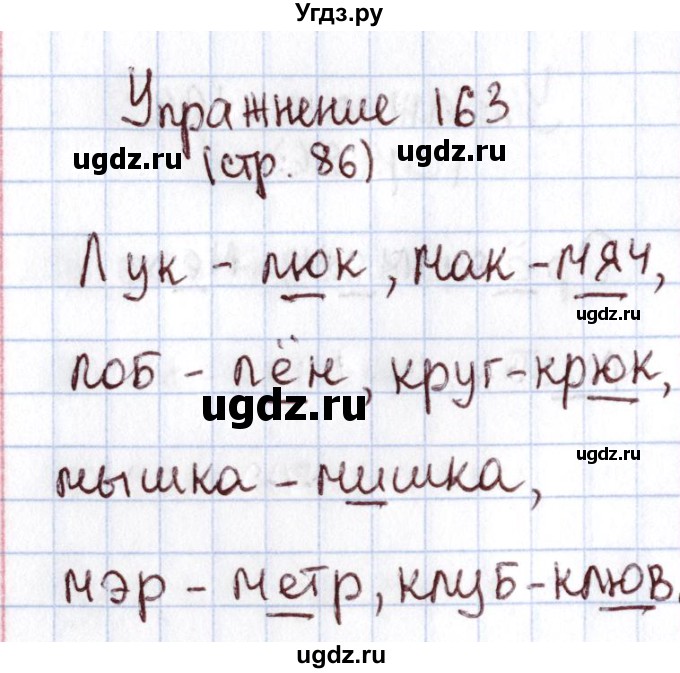 Угдз.ру
Упражнение 163
ugdz.ru (стр. 86) ugdz.ru
Лук - люк, мак - мяч,
ugdz.ru
лоб - лён, круг - крюк,
ugdz.ru
ugdz.ru
мышка - мишка,
мэр - метр, клуб - клюв.
ugdz.ru